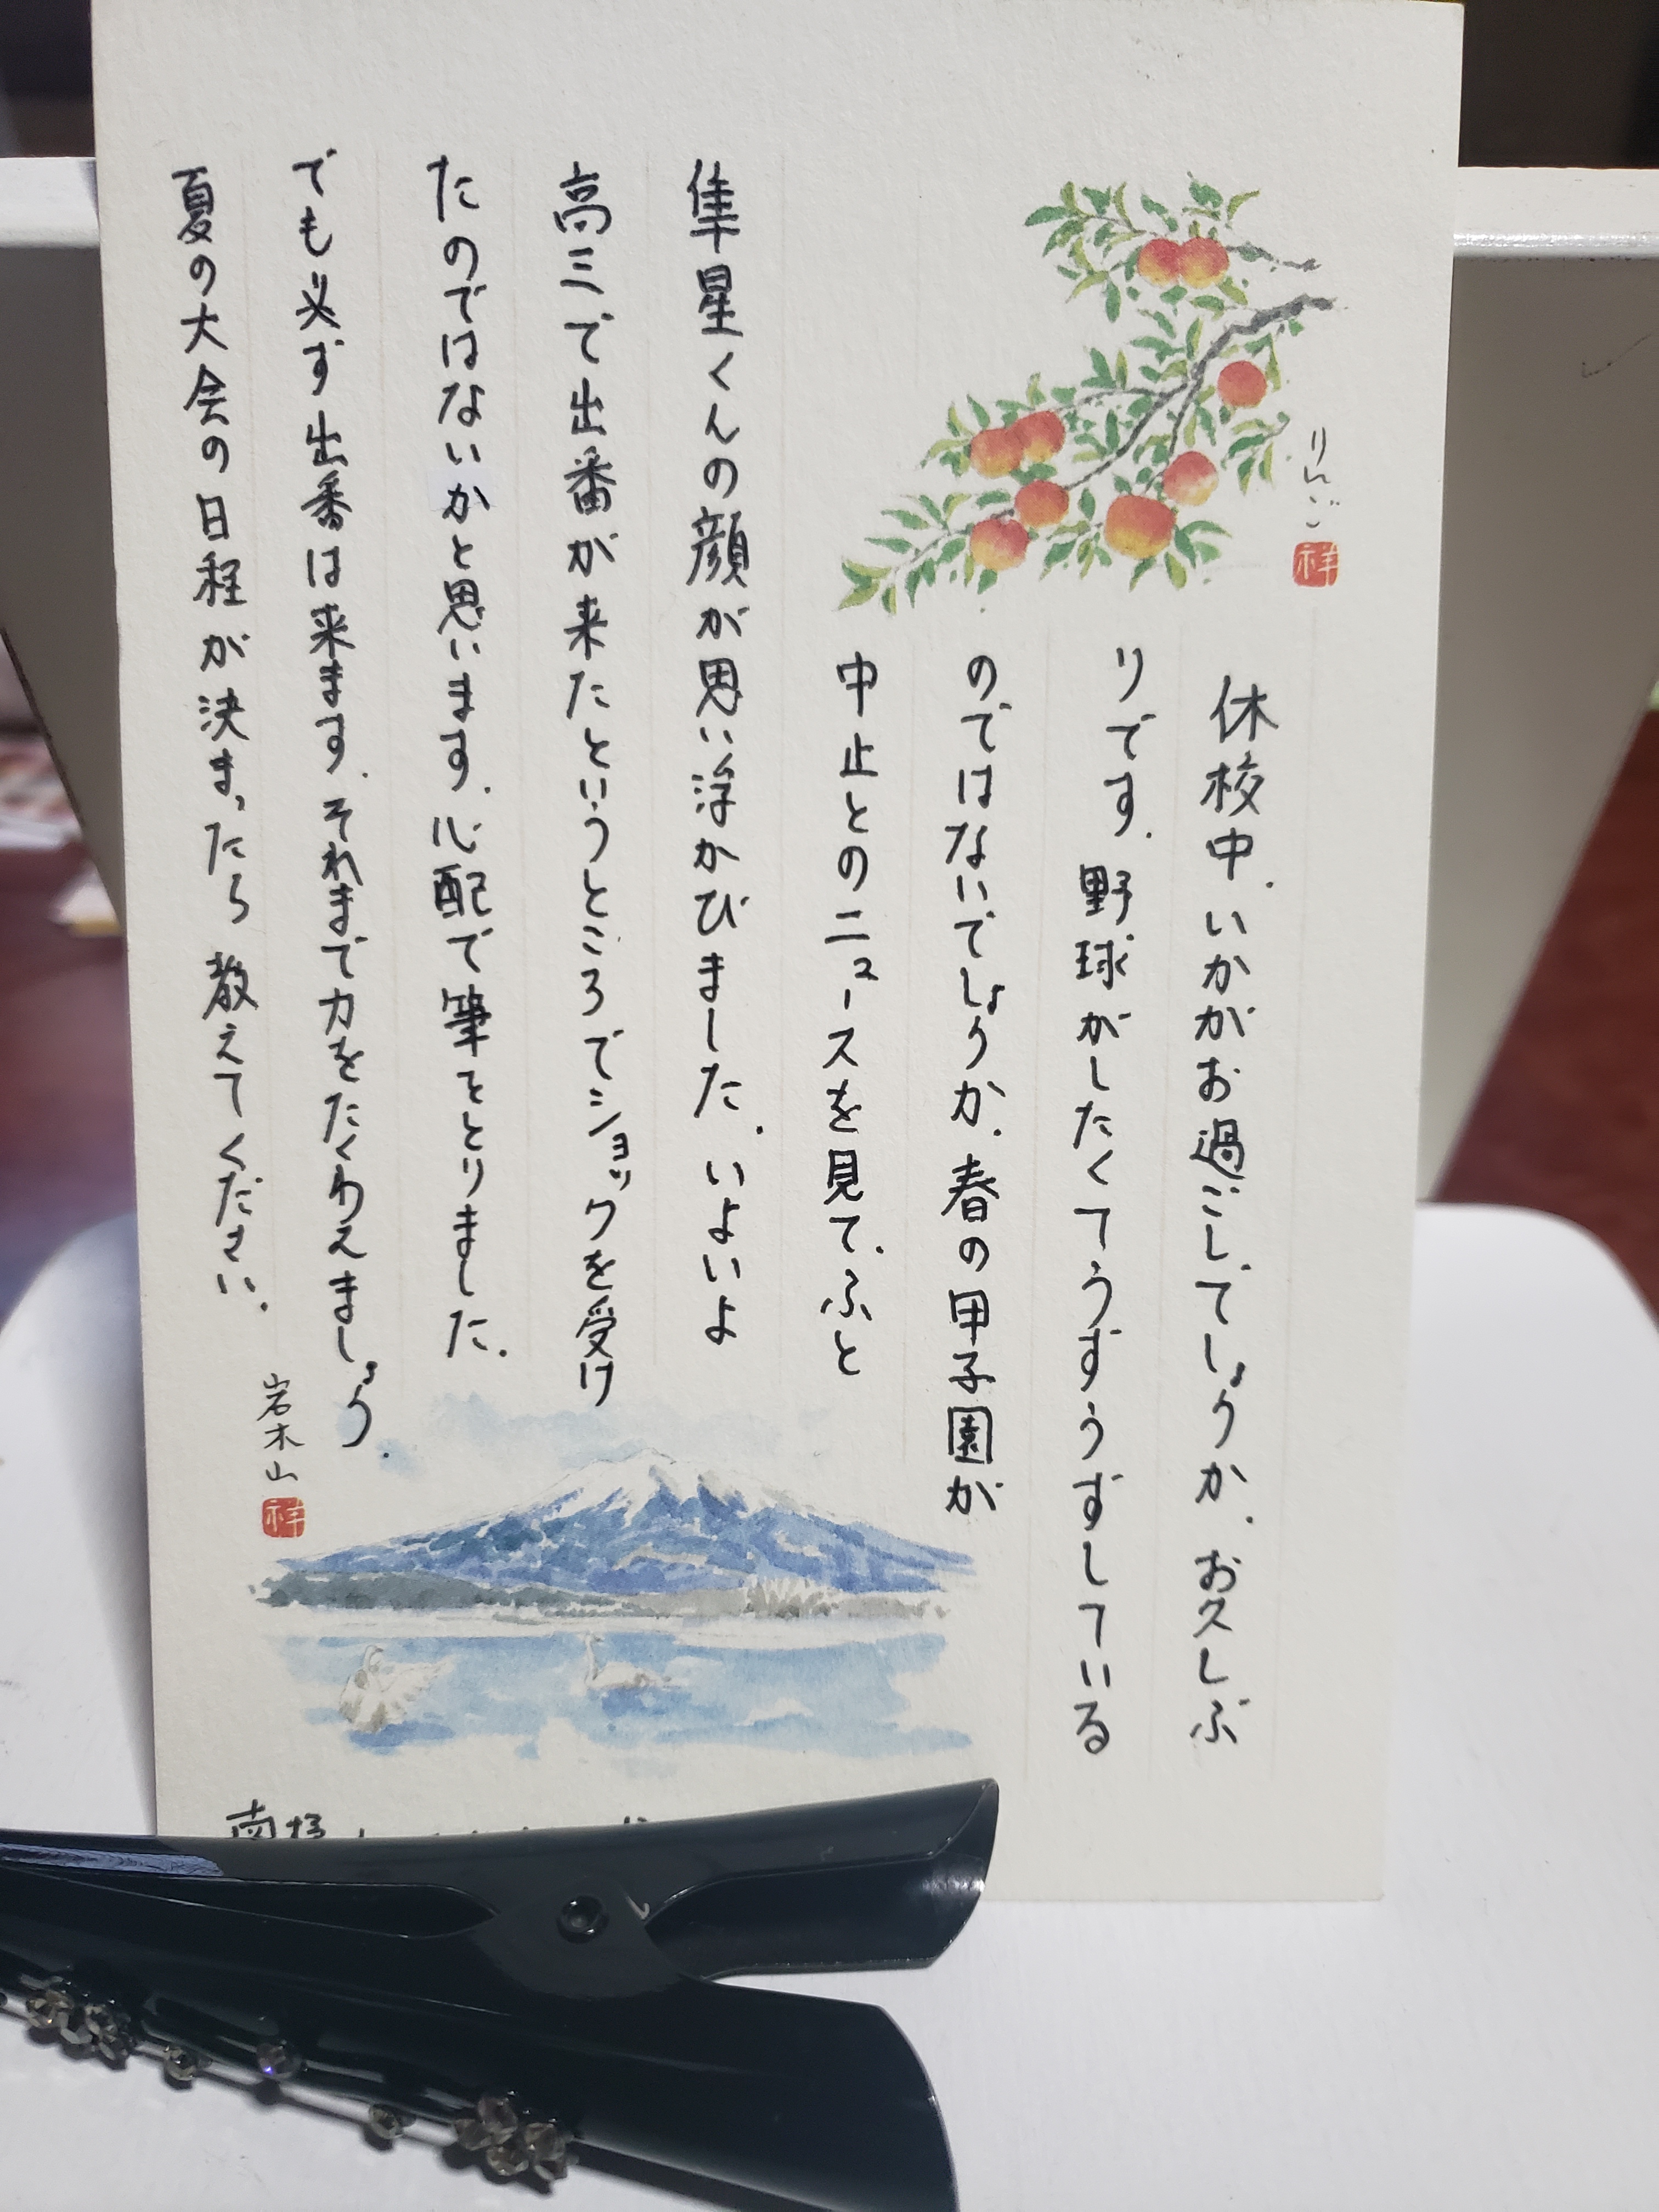 りんご
祥
休校中、いかがお過ごしてしょうか、お久しぶ
りです。野球がしたくてうずうずしている
のではないでしょうか。春の甲子園が
中止とのニュースを見て、ふと
隼星くんの顔が思い浮かびました。いよいよ
高三で出番が来たというところでショックを受け
たのではないかと思います。心配で筆をとりました。
でも必ず出番は来ます。それまで力をたくわえましょう。
夏の大会の日程が決まったら教えてください。
岩木山
祥